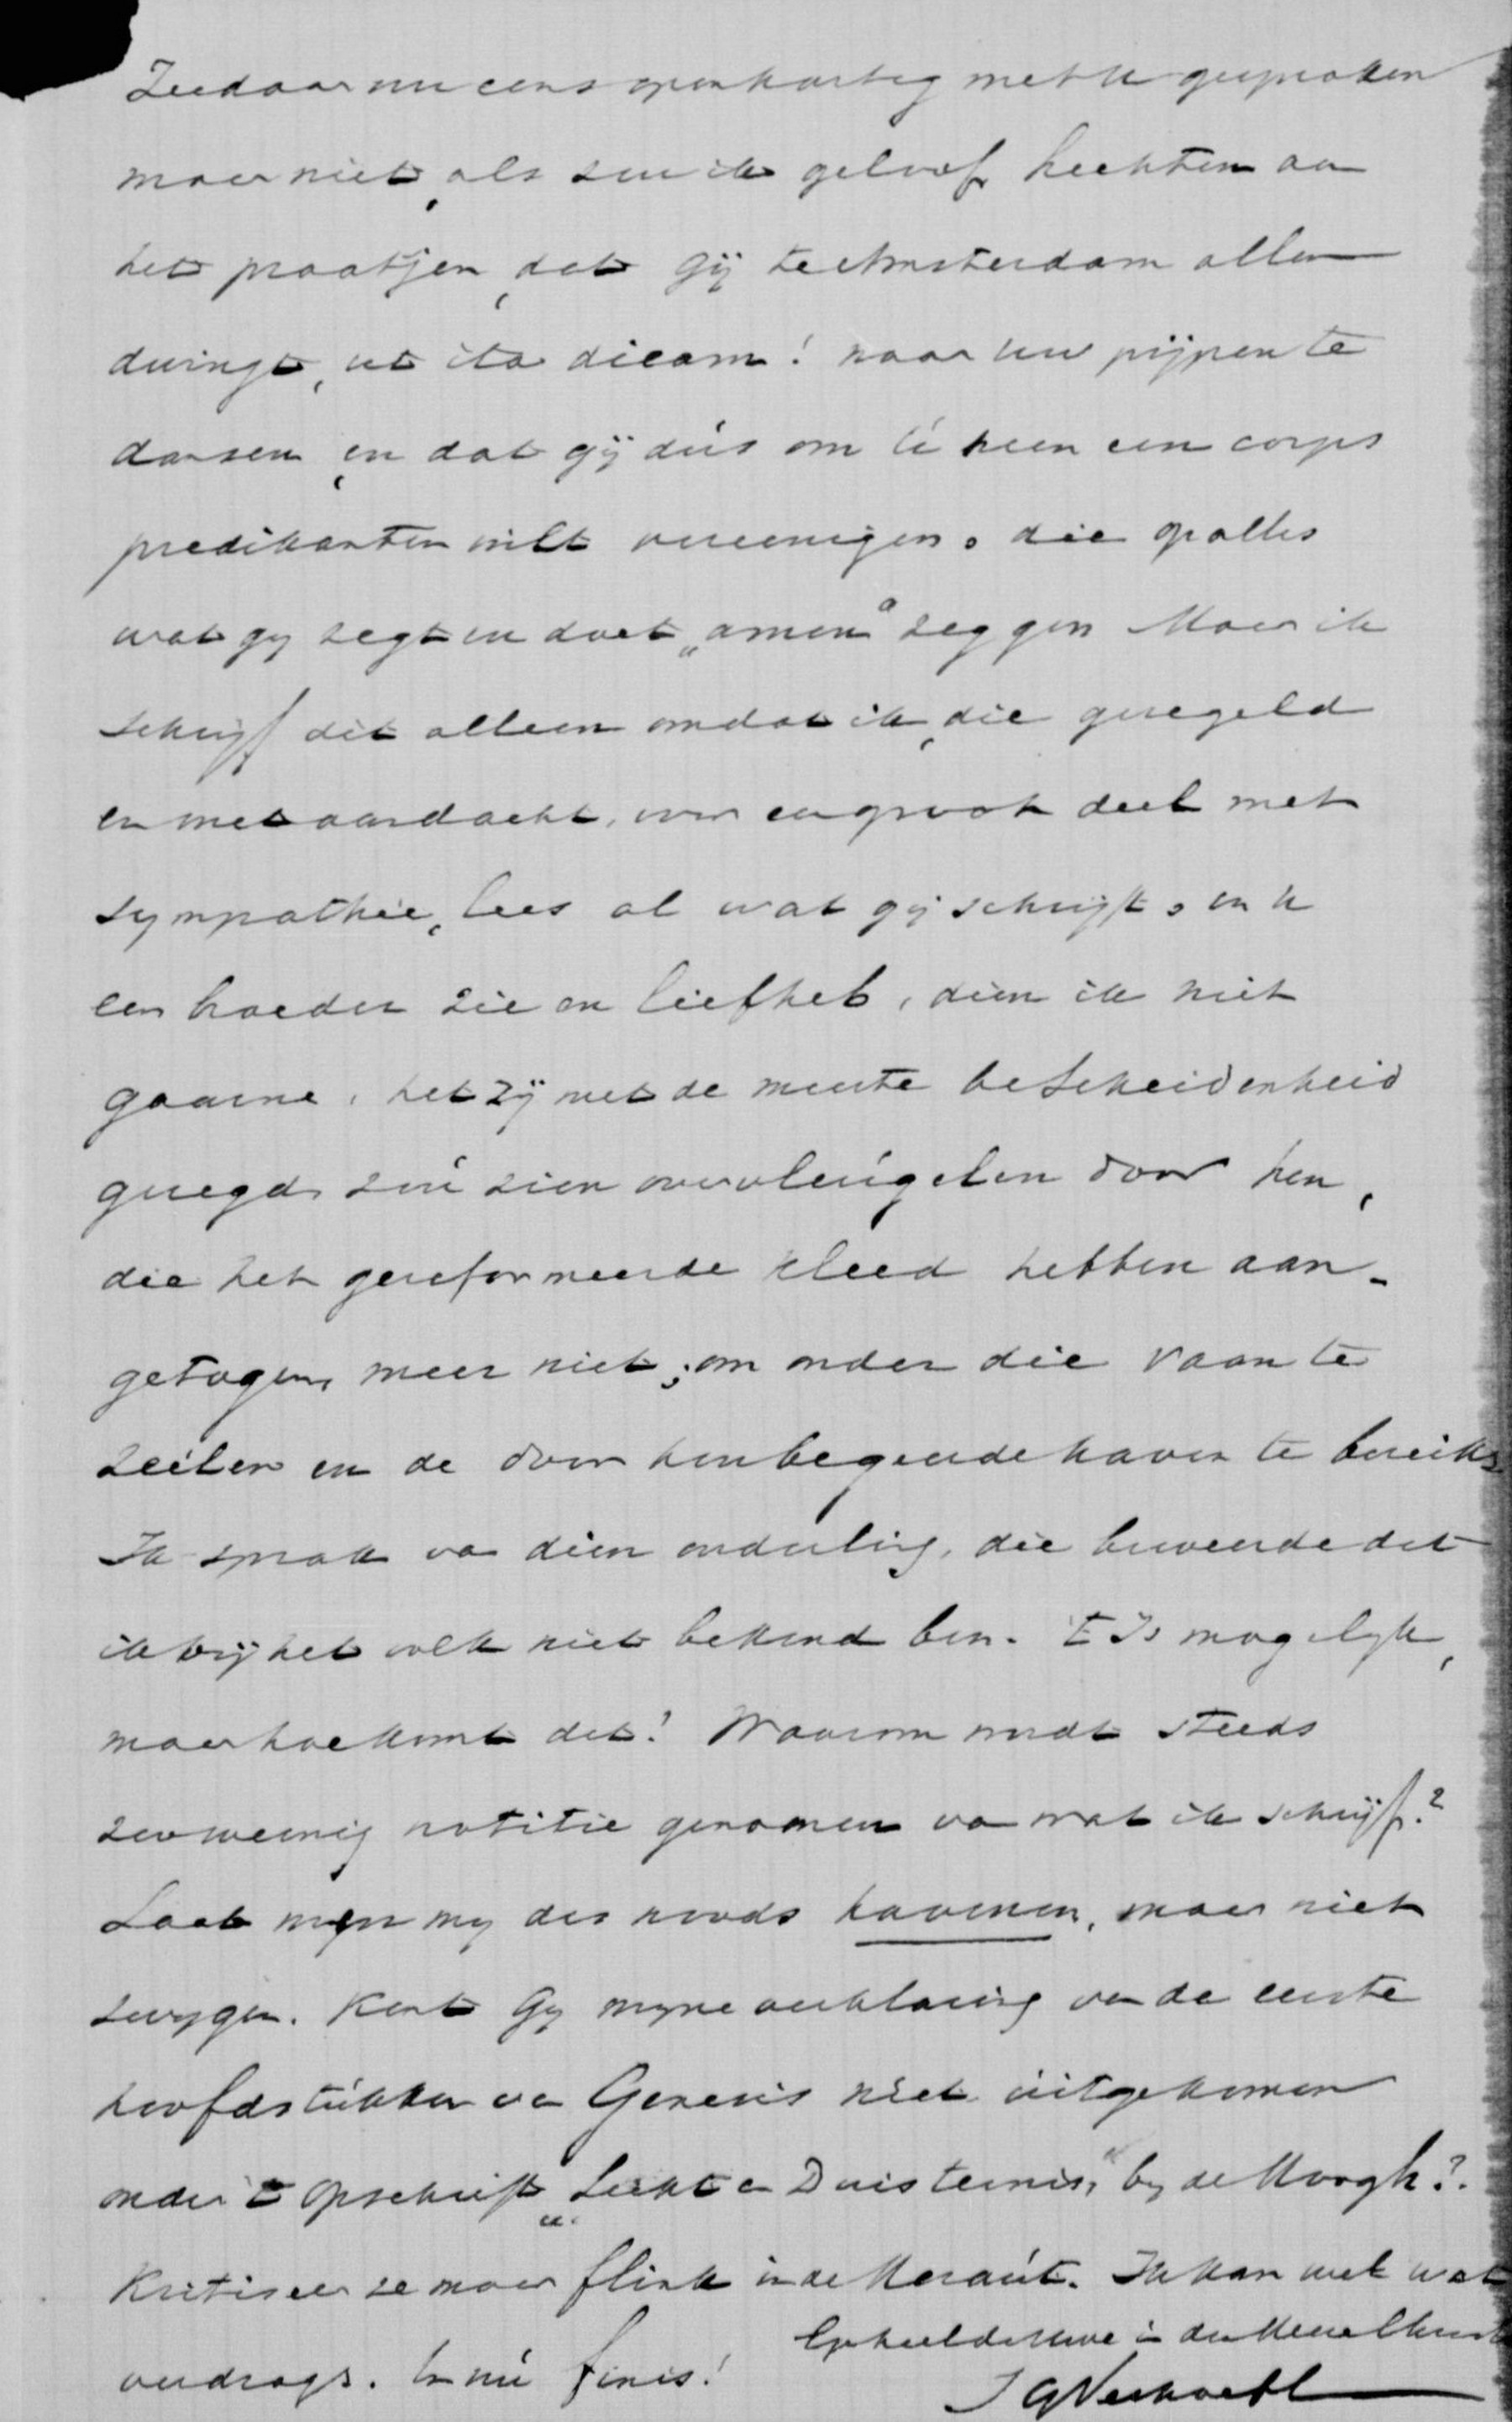 Ziedaar nu eens openhartig met u gesproken
maar niet, als zou ik geloof hechten aan
het praatjen, dat gij te Amsterdam allen
dwingt, ut ita dicam! naar uw pijpen te
dansen, en dat gij dús om ú heen een corps
predikanten wilt vereenigen, die op alles
wat gy zegt en doet „amen" zeggen Maar ik
schrijf dit alleen omdat ik, die geregeld
en met aandacht, voor een groot deel met
sympathie, lees al wat gij schrijft, en u
een broeder zie en liefheb, dien ik niet
gaarne, het zij met de meeste bescheidenheid
gezegd, zou zien overvleugelen door hen,
die het gereformeerde kleed hebben aan-
getogen, meer niet, om onder die vaan te
zeilen en de door hen begeerde haven te bereiken
Ik sprak van dien ouderling, die beweerde dat
ik bij het volk niet bekend ben. 't Is mogelyk,
maar hoe komt dat? Waarom wordt steeds
zoo weinig notitie genomen van wat ik schrijf?
Laat men my des noods havenen, maar niet
zwygen. Kent Gy myne verklaring van de eerste
hoofdstukken van Genesis niet uitgekomen
onder 't opschrift „Licht en Duisternis," by de Hoogh?
Kritiseer ze maar flink in de Heraut. Ik kan wel wat
verdragen. En nú finis!
Gy heel de Uwe in den Heer
J G Verhoeff